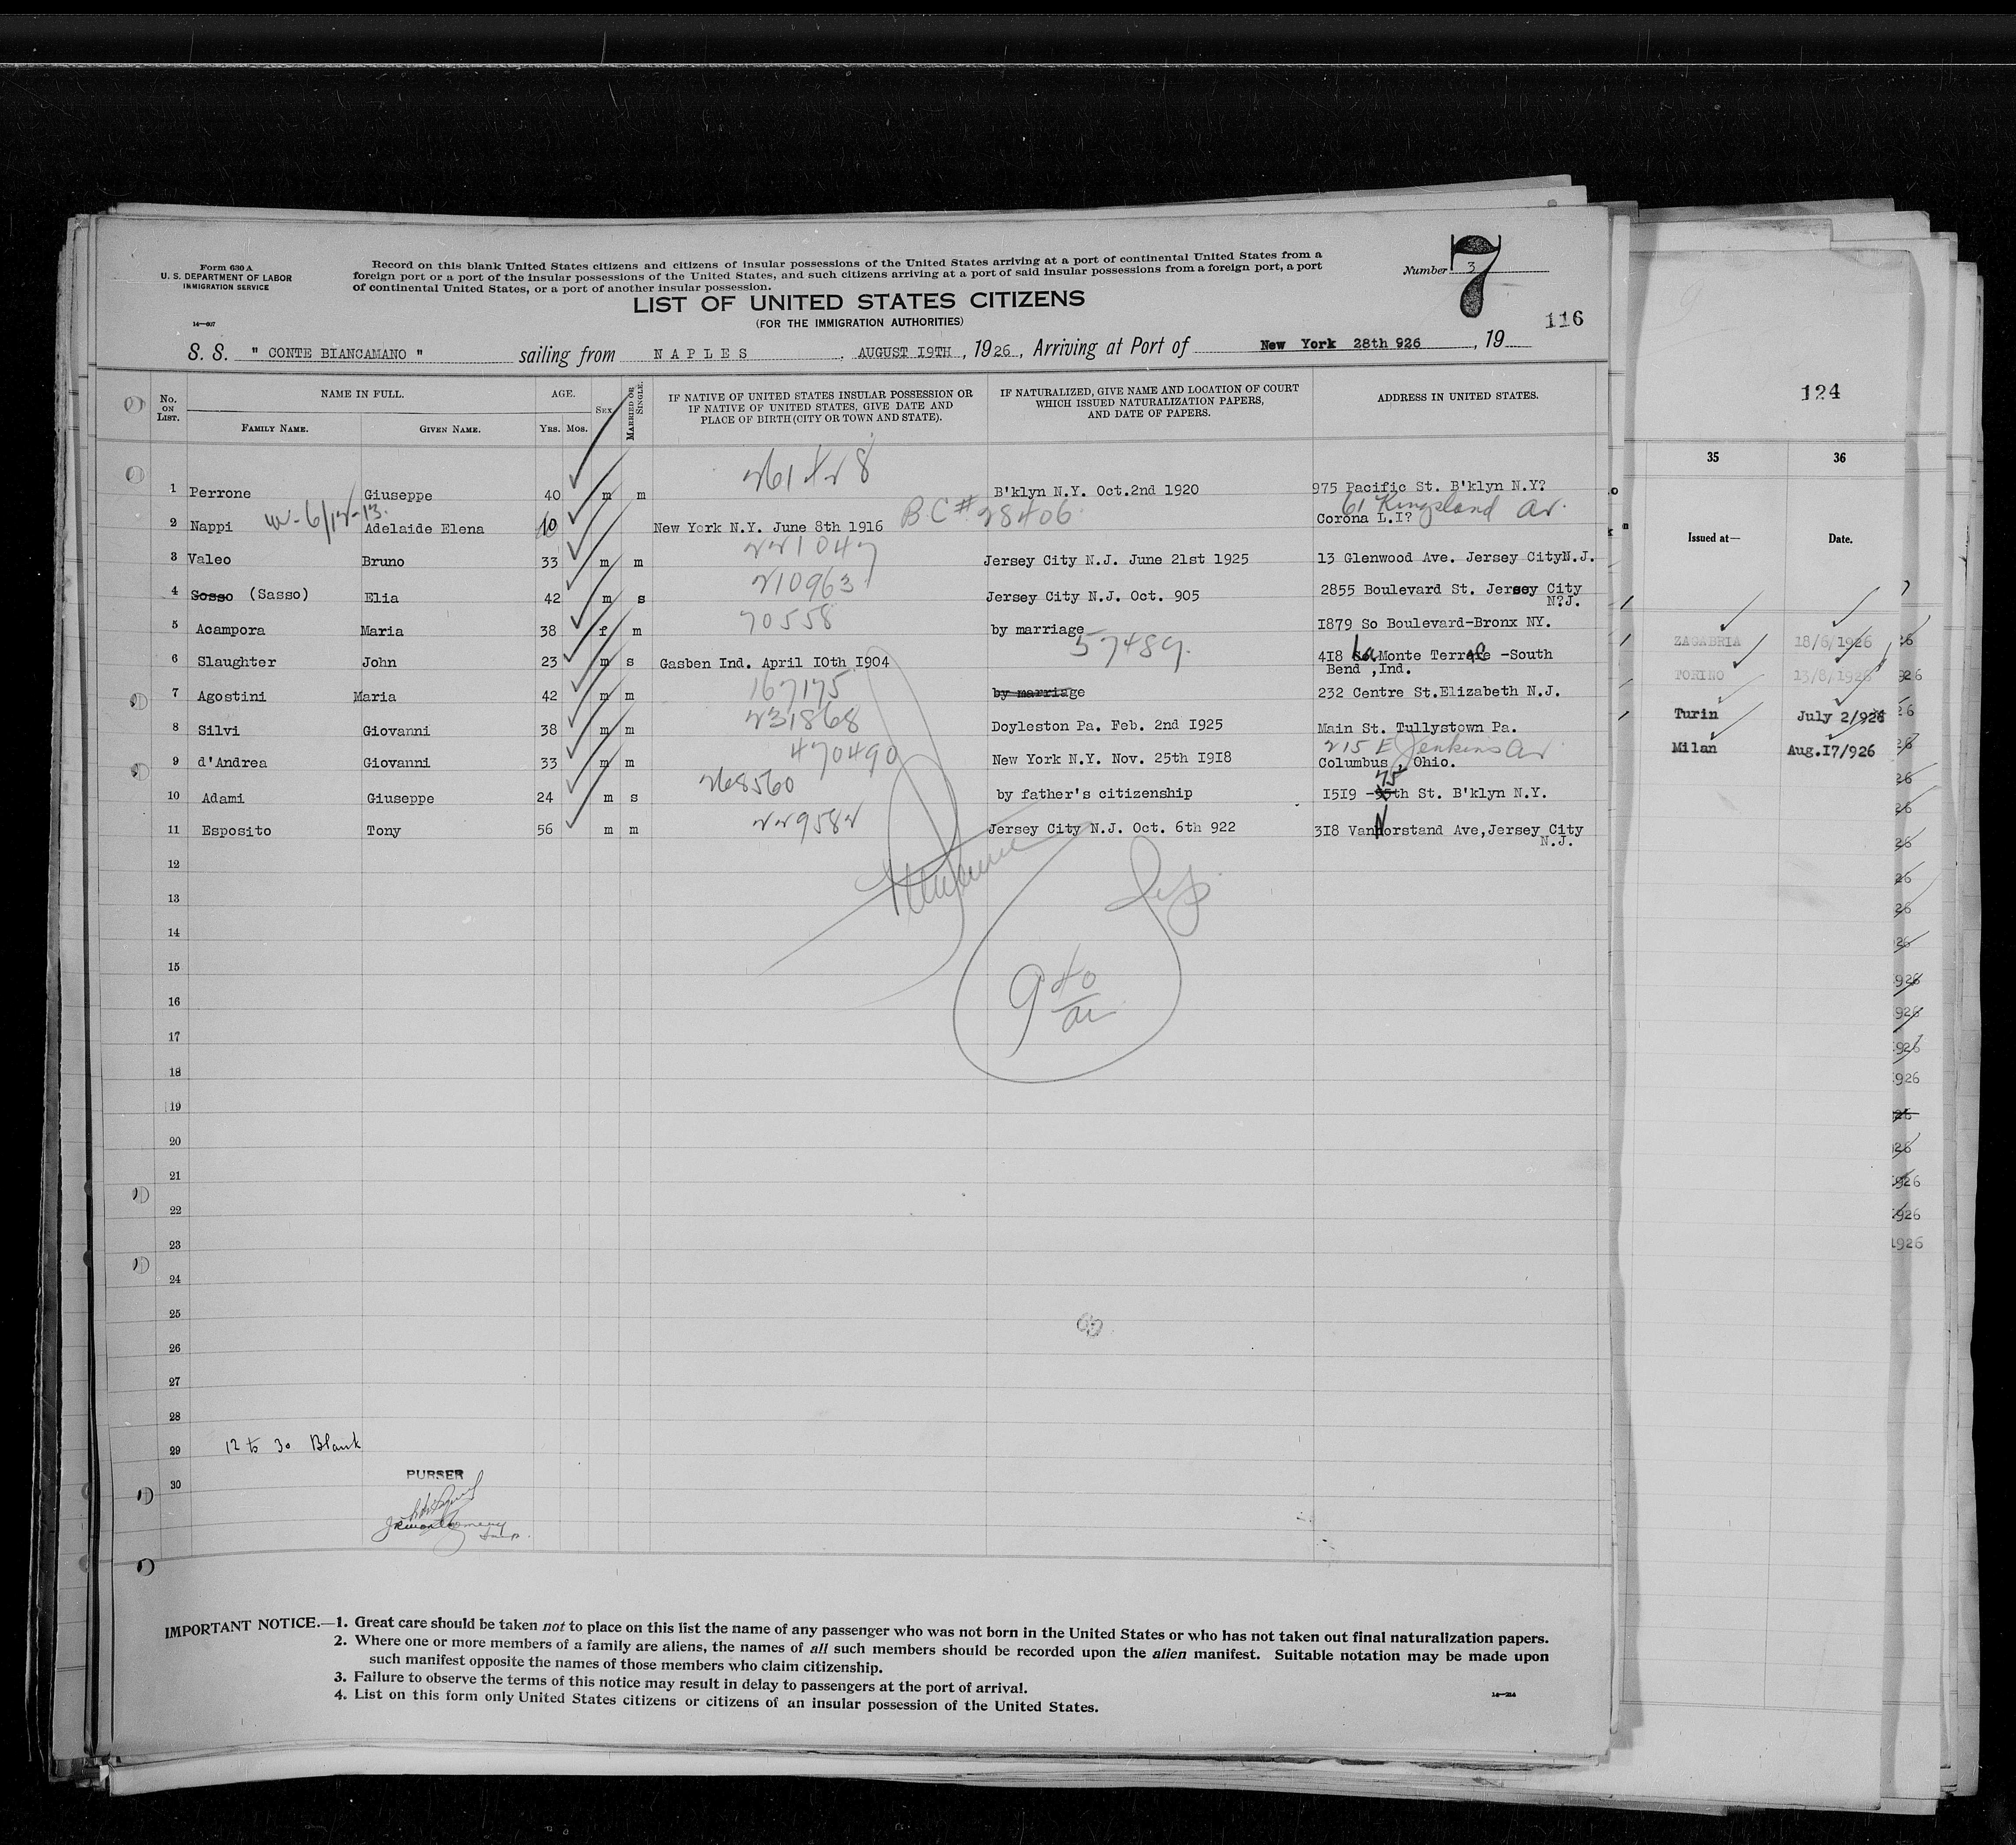 Form 630 A
U. S. DEPARTMENT OF LABOR
IMMIGRATION SERVICE
14—607
Record on this blank United States citizens and citizens of insular possessions of the United States arriving at a port of continental United States from a
foreign port or a port of the insular possessions of the United States, and such citizens arriving at a port of said insular possessions from a foreign port, a port
of continental United States, or a port of another insular possession.
Number 3
7
116
LIST OF UNITED STATES CITIZENS
(FOR THE IMMIGRATION AUTHORITIES)
S. S. " CONTE BIANCAMANO " sailing from NAPLES , AUGUST I9TH , 1926 , Arriving at Port of New York 28th 926 , 19
No. ON LIST.
NAME IN FULL.
FAMILY NAME. GIVEN NAME.
AGE.
YRS. MOS.
SEX
MARRIED OR SINGLE.
IF NATIVE OF UNITED STATES INSULAR POSSESSION OR
IF NATIVE OF UNITED STATES, GIVE DATE AND
PLACE OF BIRTH (CITY OR TOWN AND STATE).
IF NATURALIZED, GIVE NAME AND LOCATION OF COURT
WHICH ISSUED NATURALIZATION PAPERS,
AND DATE OF PAPERS.
ADDRESS IN UNITED STATES.
1 Perrone Giuseppe 40 m m B'klyn N.Y. Oct.2nd 1920 975 Pacific St. B'klyn N.Y?
61 Kingsland Av.
2 Nappi Adelaide Elena 10 New York N.Y. June 8th 1916 BC# 28406 Corona L.I?
221047
3 Valeo Bruno 33 m m Jersey City N.J. June 21st 1925 13 Glenwood Ave. Jersey CityN.J.
210963
4 Sosso (Sasso) Elia 42 m s Jersey City N.J. Oct. 905 2855 Boulevard St. Jersey City
N?J.
70558
5 Acampora Maria 38 f m by marriage I879 So Boulevard-Bronx NY.
57489
6 Slaughter John 23 m s Gasben Ind. April I0th I904 4I8 La Monte Terrace -South
Bend ,Ind.
167175
7 Agostini Maria 42 m m by marriage 232 Centre St.Elizabeth N.J.
231868
8 Silvi Giovanni 38 m m Doyleston Pa. Feb. 2nd I925 Main St. Tullystown Pa.
470490
215 E Jenkins Av
9 d'Andrea Giovanni 33 m m New York N.Y. Nov. 25th I9I8 Columbus , Ohio.
268560
75
10 Adami Giuseppe 24 m s by father's citizenship I5I9 -95th St. B'klyn N.Y.
229582
11 Esposito Tony 56 m m Jersey City N.J. Oct. 6th 922 3I8 VanNorstand Ave,Jersey City
N.J.
12
13
14
15
16
17
18
19
20
21
22
23
24
25
26
27
28
29 12 to 30 Blank
30
PURSER
9 40
am
IMPORTANT NOTICE.—1. Great care should be taken not to place on this list the name of any passenger who was not born in the United States or who has not taken out final naturalization papers.
2. Where one or more members of a family are aliens, the names of all such members should be recorded upon the alien manifest. Suitable notation may be made upon
such manifest opposite the names of those members who claim citizenship.
3. Failure to observe the terms of this notice may result in delay to passengers at the port of arrival.
4. List on this form only United States citizens or citizens of an insular possession of the United States.
124
35 36
Issued at— Date.
ZAGABRIA 18/6/1926
TORINO 13/8/1926
Turin July 2/926
Milan Aug.I7/926